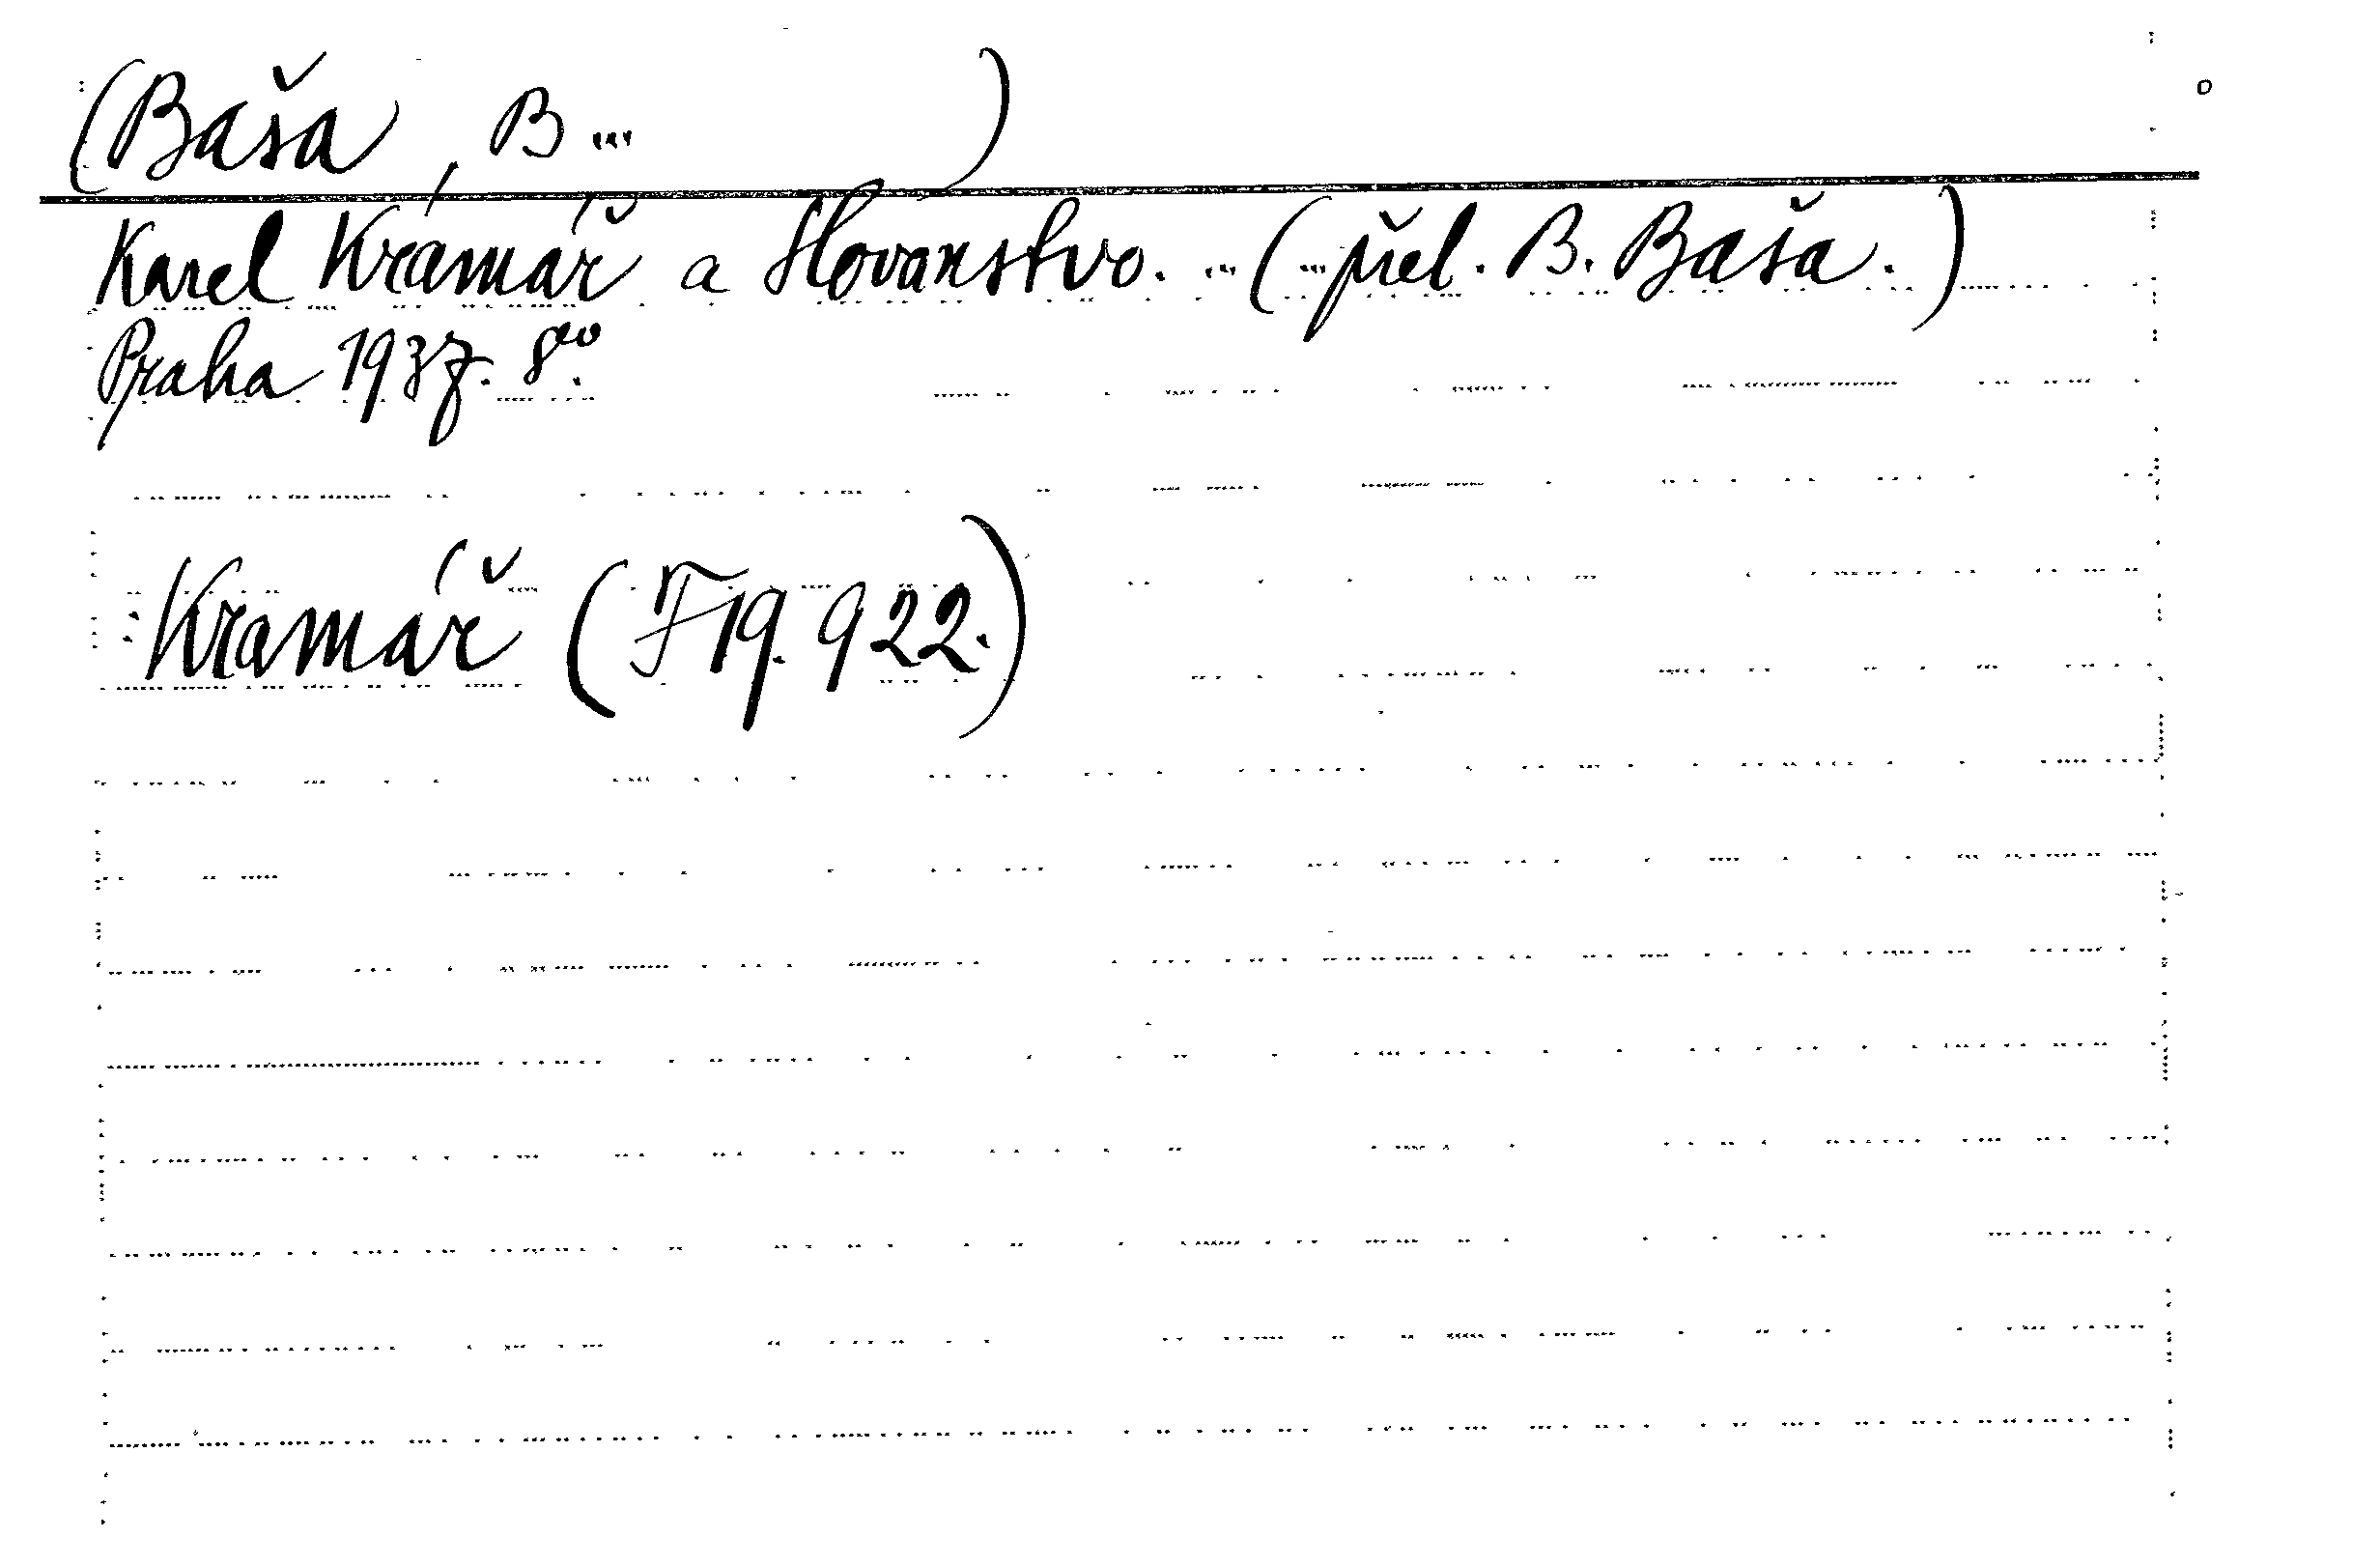 (Baša, B... )
Karel Kramář a Slovanstvo. ... (...přel. B. Baša.)
Praha 1937. 8vo.
Kramář (F 19.922.)